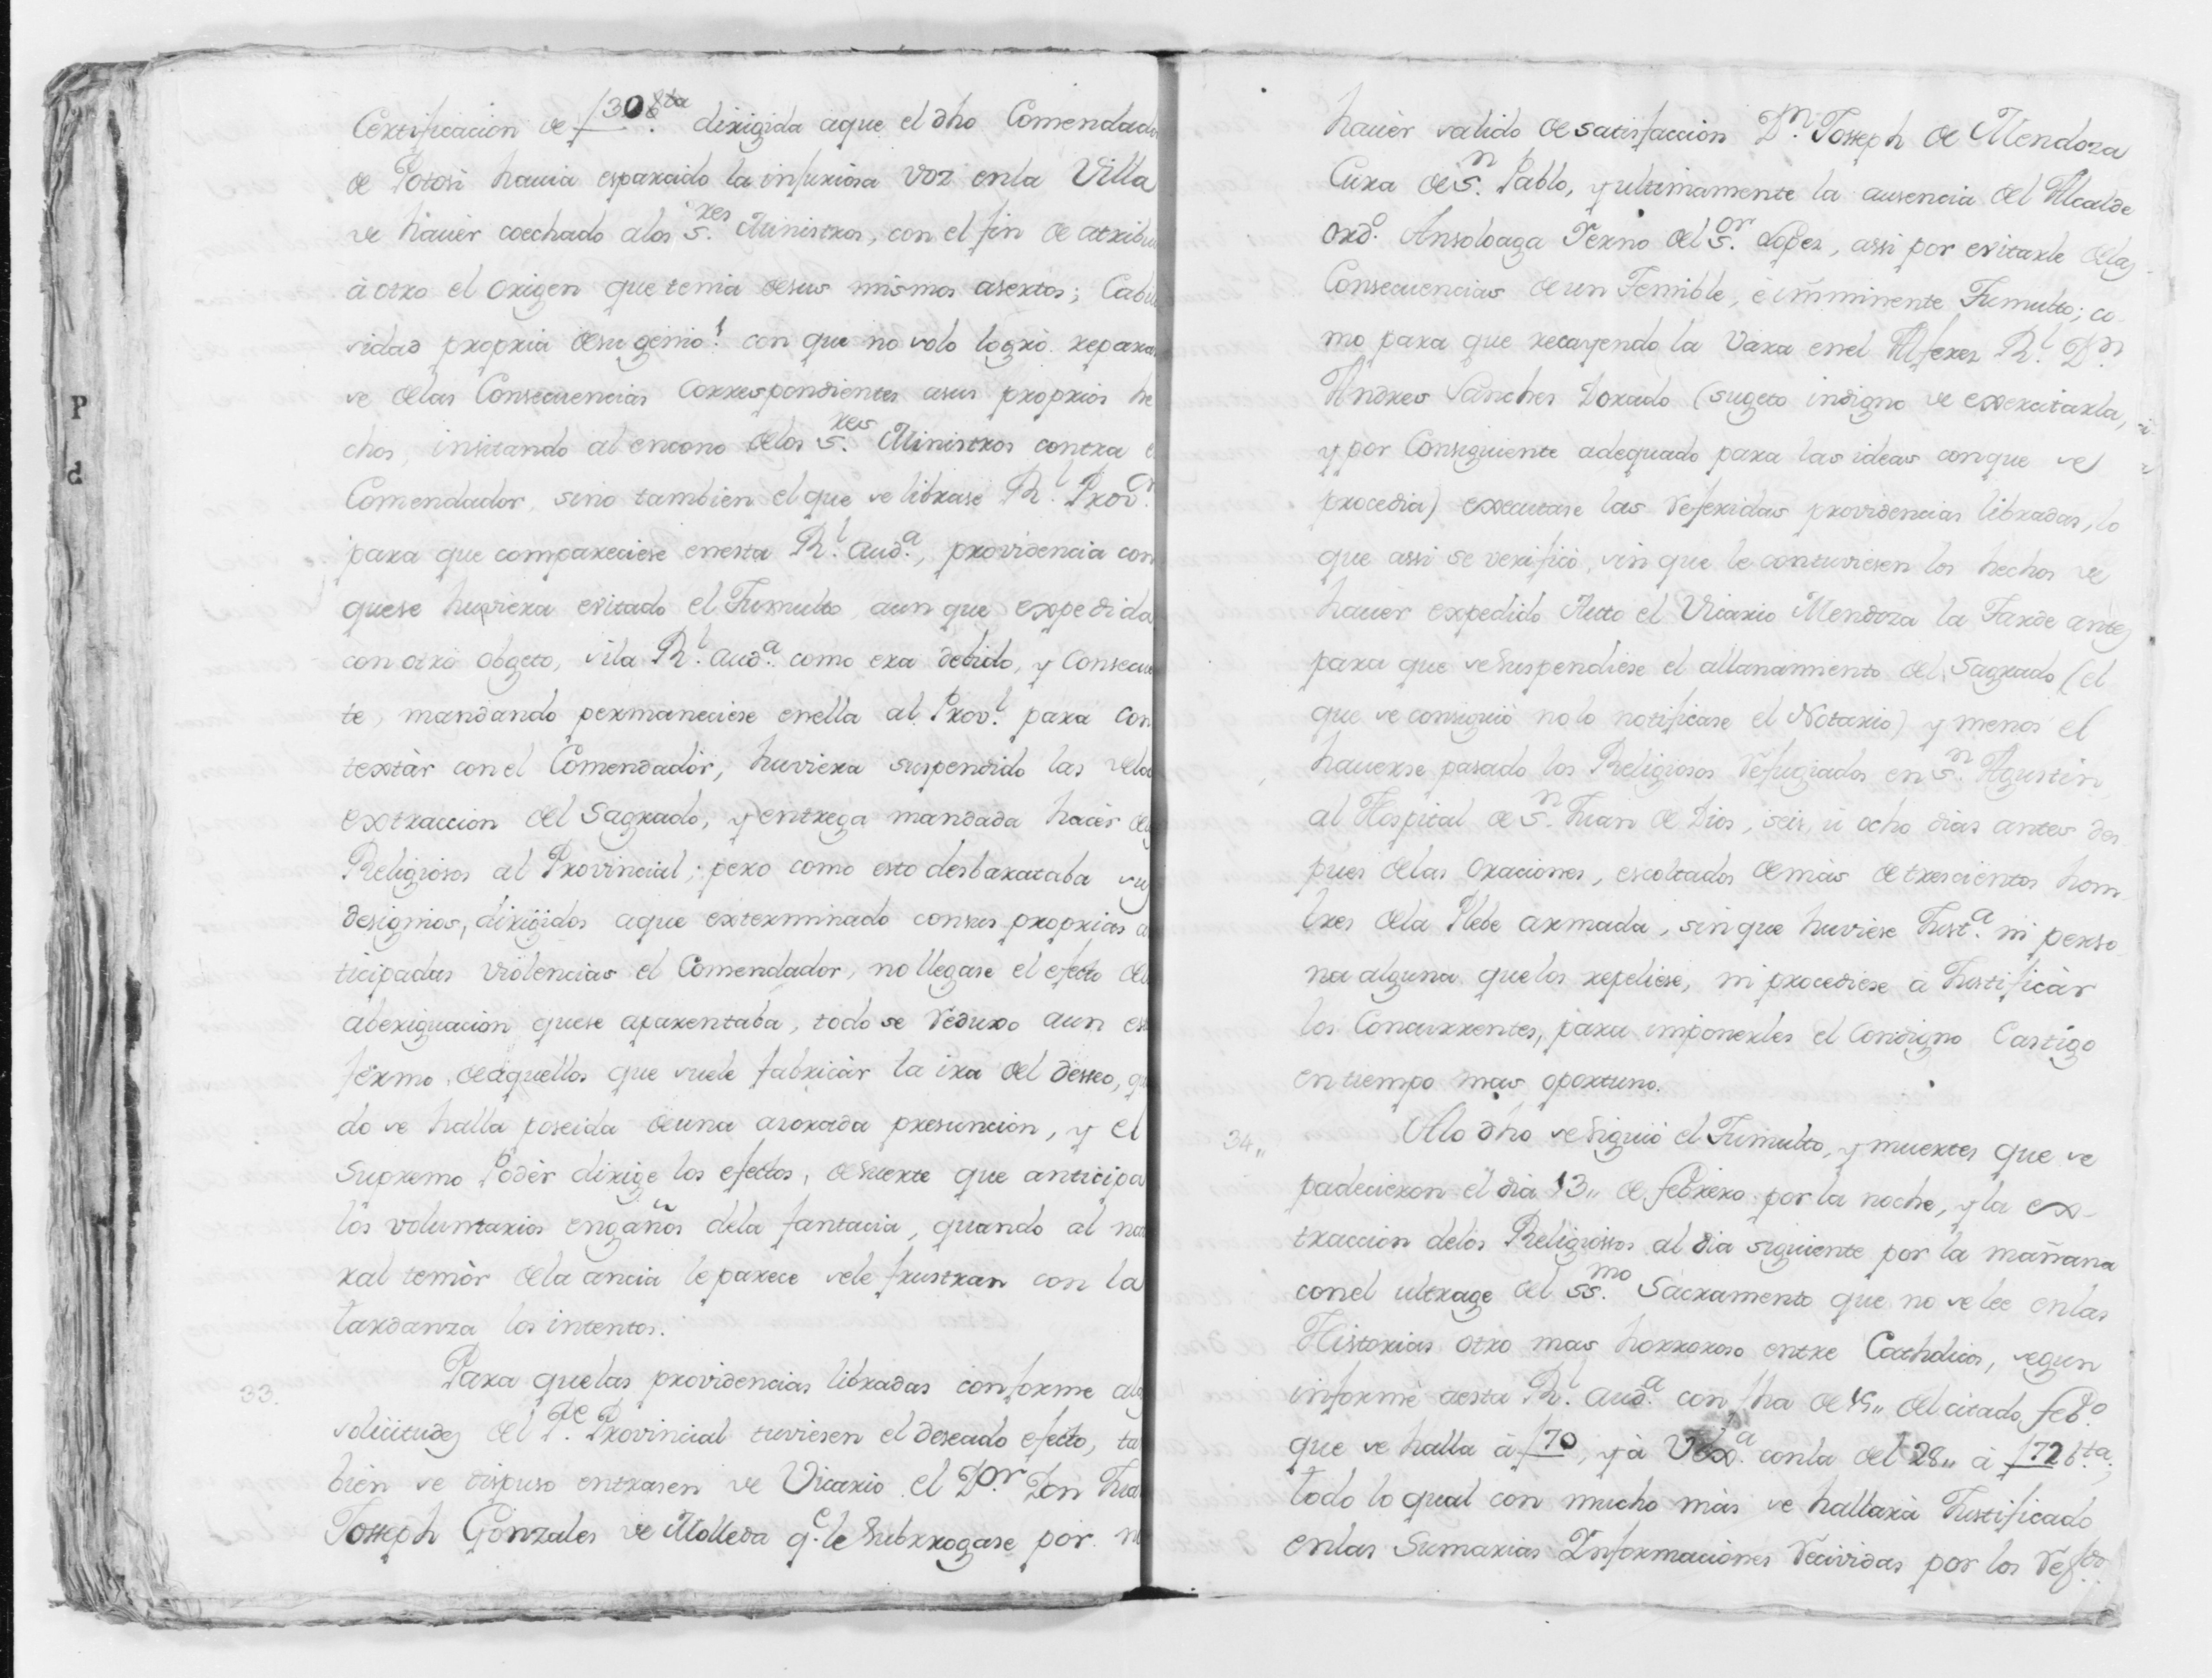 Certificacion de f308 bta dirigida aque el dho Comendad
de Potosi hauia esparcido la injuriosa voz enla Villa
de hauer coechado alos S.res Ministros, con el fin de atribu
à otro el origen que tenia desus mismos asertos; Cabi
vidad propria desu genio! con que no solo logrò repara
se delas Consecuencias correspondientes asus proprios he
chos, insitando al encono delos S.res Ministros contra e
Comendador, sino tambien el que se librase Rl. Provon.
para que compareciese enesta Rl. Auda., providencia con
quese huviera evitado el Tumulto, aun que expedida
con otro obgeto, sila Rl. Auda. como era debido, y Consecue
te, mandando permaneciese enella al Provl. para con
textàr conel Comendadòr, huviera suspendido las
extraccion del Sagrado, y entrega mandada hacèr de
Religiosos al Provincial; pero como esto desbarataba su
designios, dirigidos aque exterminado consus proprias a
ticipadas violencias el Comendador, no llegase el efecto de
aberiguacion quese aparentaba, todo se reduxo aun
fermo, deaquellos que suele fabricàr la ira del desseo, q
do se halla poseida deuna azorada presuncion, y el
Supremo Podèr dirige los efectos, desuerte que anticipa
los voluntarios engaños dela fantacia, quando al na
ral temòr dela ancia leparece sele frustran con la
tardanza los intentos.
33. Para quelas providencias libradas conforme ala
solicitudes del Pe. Provincial tuviesen el deseado efecto, ta
bien se dispuso entrasen de Vicario el Dor. Don Jua
Josseph Gonzales de Molleda qe. le subrrogase por n
hauèr valido desatisfaccion Dn. Josseph de Mendoza
Cura de Sn. Pablo, y ultimamente la ausencia del Alcalde
ordo. Ansoloaga Yerno del Sor. Lopez, assi por evitarle delas
Consecuencias deun Temible, è imminente Tumulto; co
mo para que recayendo la Vara enel Alferez Rl. Dn.
Andres Sanches Dorado (sugeto indigno de exercitarla,
y por Consiguiente adequado para las ideas conque se
procedia) executase las referidas providencias libradas, lo
que assi se verificò, sin que le contuviesen los hechos de
hauèr expedido Auto el Vicario Mendoza la Tarde antes
para que se suspendiese el allanamiento del Sagrado (el
que se consiguiò nolo notificase el Notario) y menos el
hauerse pasado los Religiosos refugiados en Sn. Agustin
al Hospital de Sn. Juan de Dios, seis, ù ocho dias antes des
pues delas oraciones, escoltados demàs de trescientos hom
bres dela Plebe armada, sinque huviese Justa. ni perso
na alguna quelos repeliese, ni procediese à Justificàr
los Concurrentes, para imponerles el Condigno Castigo
en tiempo mas oportuno.
34,, Alo dho se siguiò el Tumulto, y muertes que se
padecieron el dia 13,, de febrero por la noche, y la ex-
traccion delos Religiosos al dia siguiente por la mañana
conel ultrage del SS.mo Sacramento que no se lee enlas
Historias otro mas horroroso entre Catholicos, segun
informè aesta Rl. Auda. con fha de 15,, del citado febo.
que se halla à f70, y à V. Exa. conla del 28,, à f72 bta.;
todo lo qual con mucho màs se hallarà Justificado
enlas Sumarias Informaciones recividas por los refdos.